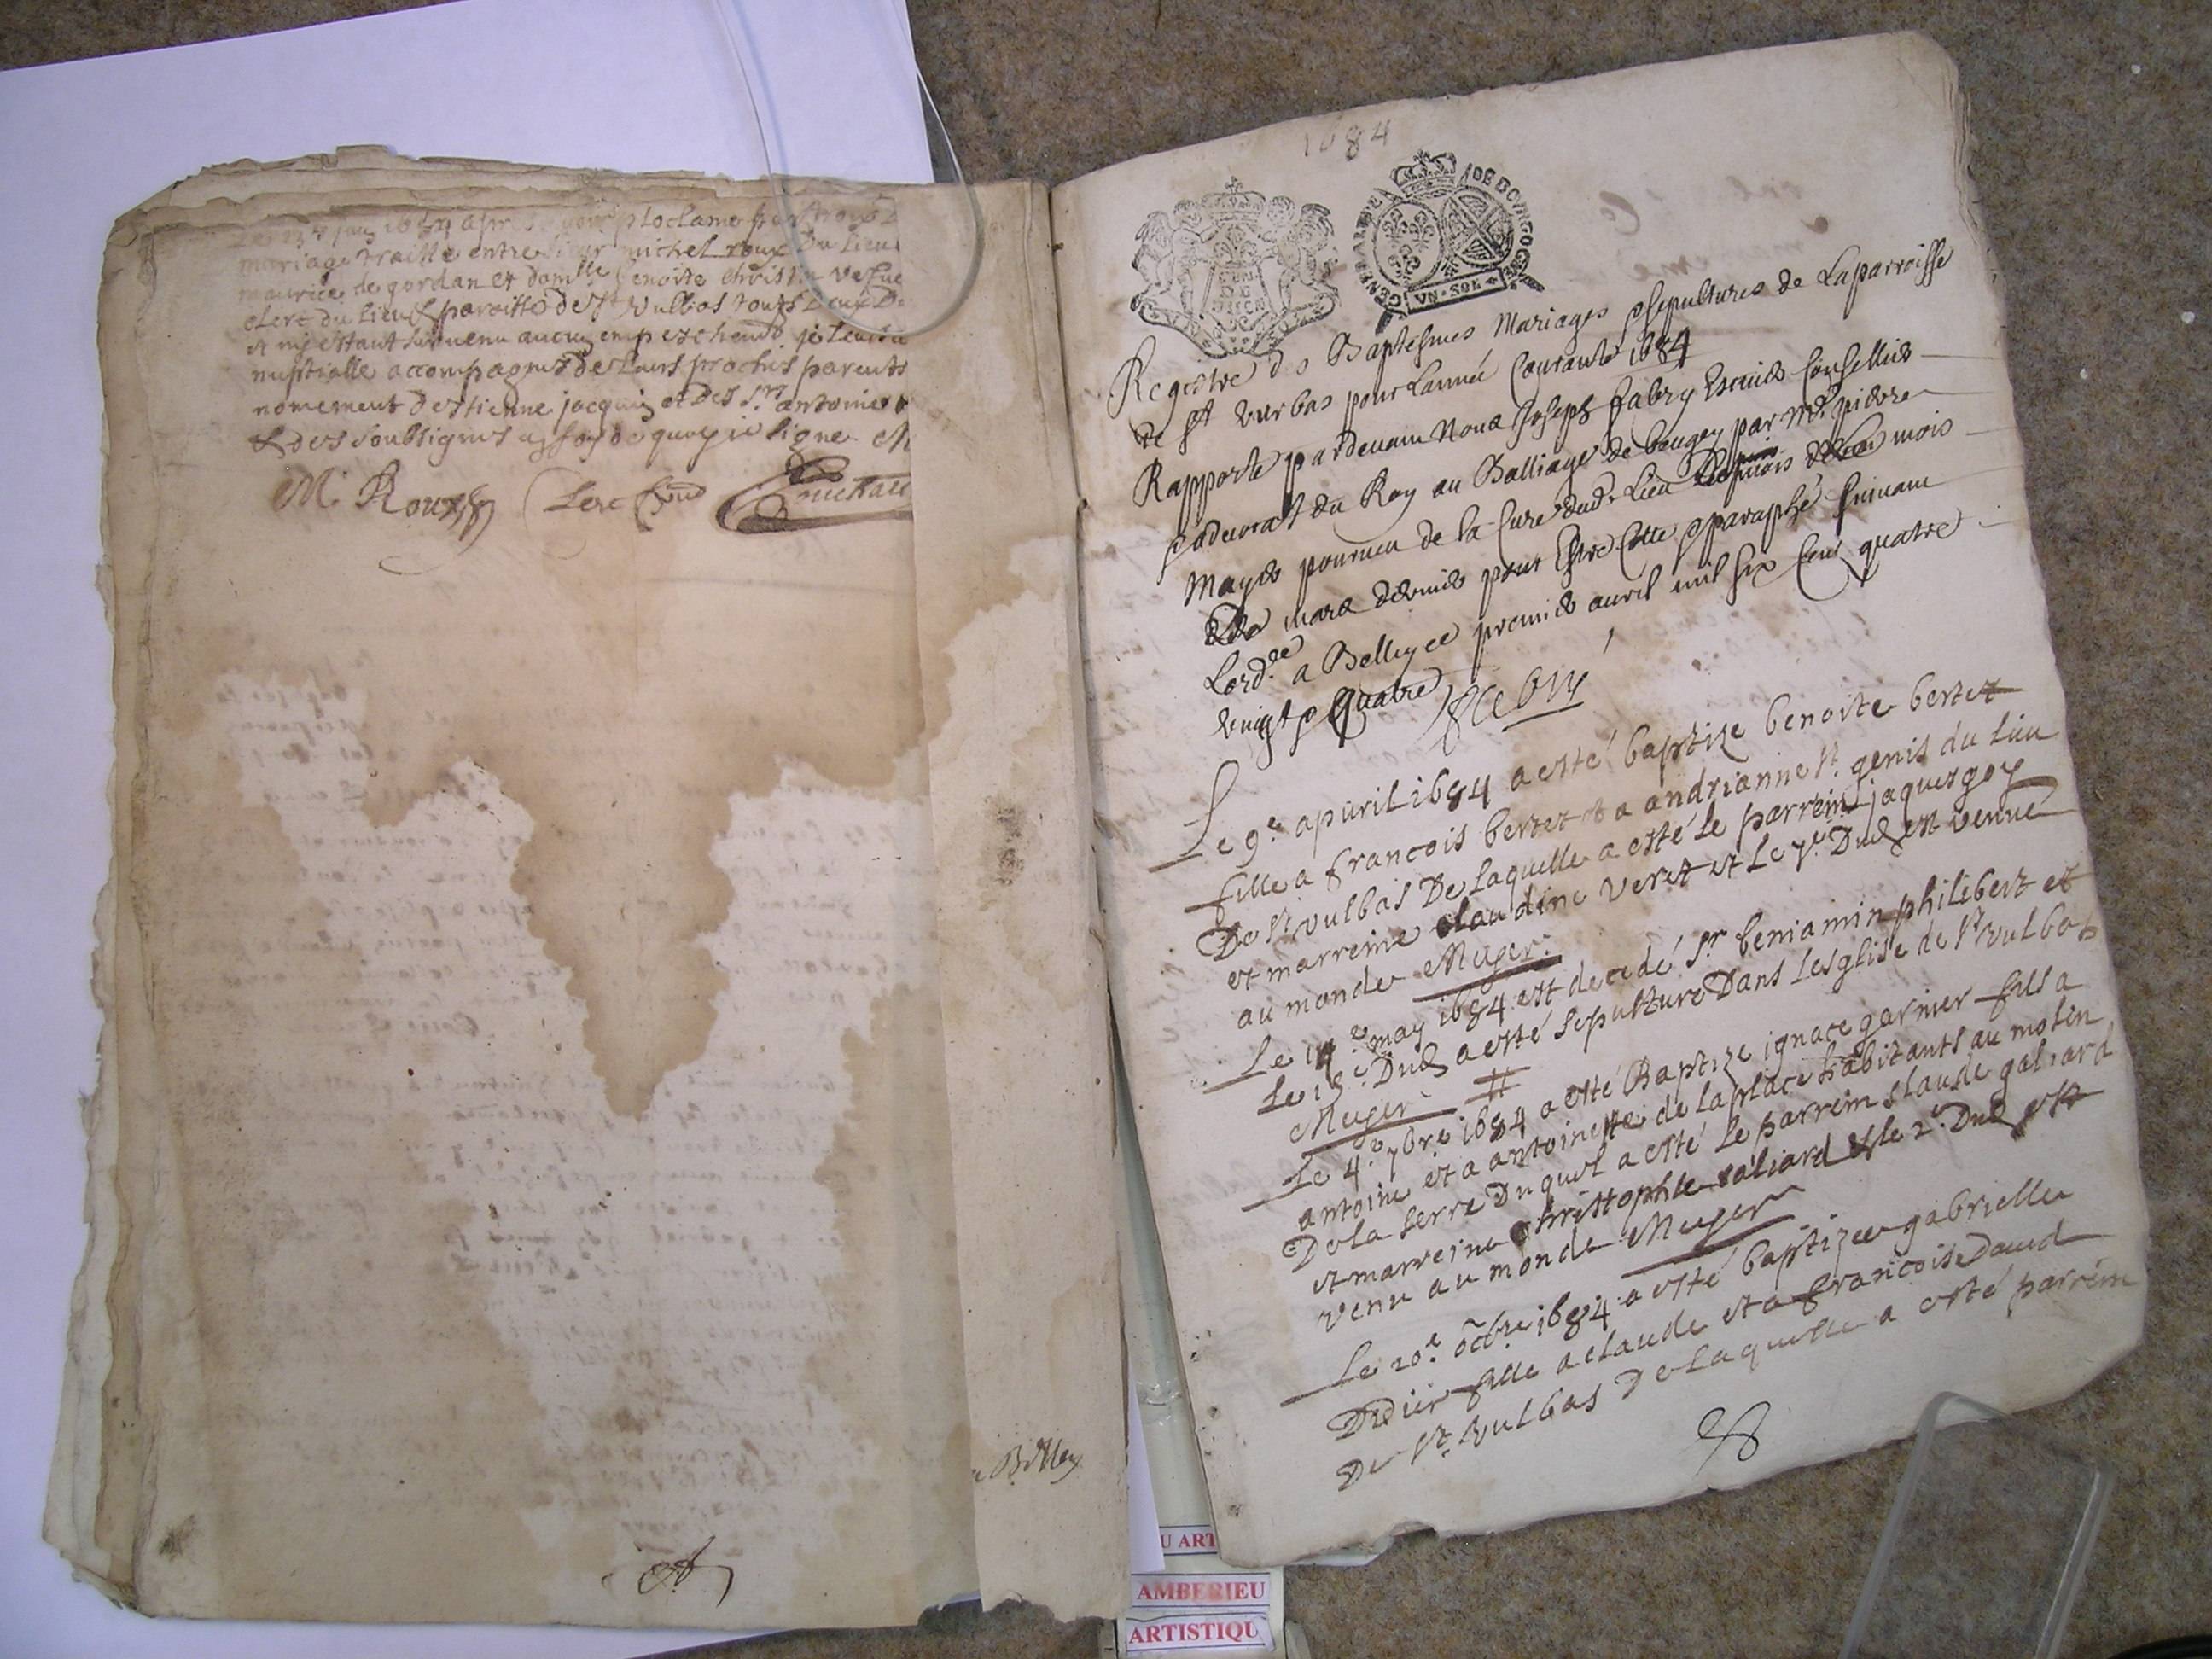 mariage traitté entre sieur michel roux Du lieu
maurice de gordan et damlle benoite christin vefue
clerc du lieu & paroisse de st vulbas touts deux De
et ny estant suruenu aucun empeschemt je leur ay
nuptialle accompagnés de leurs prochis parents
nomement destienne jacquin et des srs antoine
& des soubsignes en foy de quoy ie signe
M. Roux
1684
GENERALITE DE BOVRGOGNE
VN SOL
Registre des Baptesmes Mariages & sepultures de Laparroisse
de st vurbas pour Lannée Courante 1684
Rapporté pardeuant Nous Joseph fabry Escuier Conseiller
& aduocat du Roy au Balliage de beugey par Mre pierre
Mayer pourueu de la Cure dudt Lieu mois
de mars dernier pour Estre Cotté & paraphé suiuant
Lordce a Belley ce premier auril mil six Cens quatre
vingt & Quatre
fabry
Le 9e apuril 1684 a esté baptize benoite bertet
fille a francois bertet et a andrianne st genis du lieu
De st vulbas De laquelle a esté le parrein jaques goy
et marreine claudine veret et le 7e Dud est venue
au monde Meyer.
Le 14e may 1684 est decedé sr beniamin philibert et
Le 15e Dud a esté sepulturé Dans lesglise de st vulbas
Meyer
Le 4e 7bre 1684 a esté Baptize ignace garnier fils a
antoine et a antoinette de la place habitants au molin
De la serre Du quel a esté le parrein claude galiard
et marreine christophle galiard & le 2e Dud est
venu au monde Meyer
Le 20e octbre 1684 a esté baptizee gabrielle
Didier fille a claude et a francoise Daud
De st vulbas De laquelle a esté parrein
Belley
U ART
AMBERIEU
ARTISTIQU